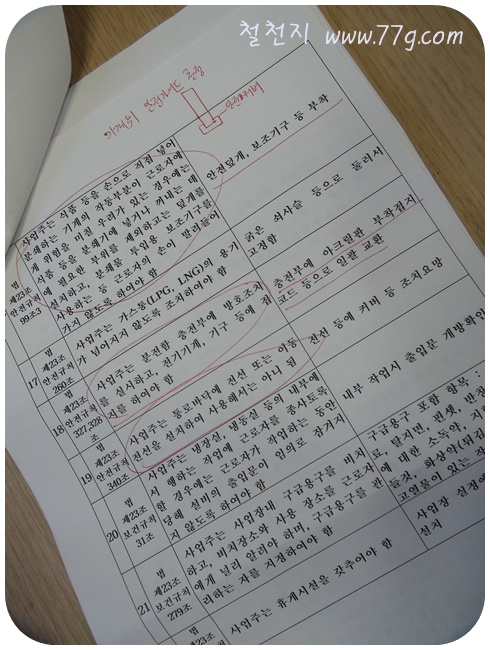 철천지 www.77g.com
안전덮개
사업주는 식품 등을 손으로 직접 넣어
분쇄하는 기계의 작동부분이 근로자에
게 위험을 미칠 우려가 있는 경우에는
식품 등을 분쇄기에 넣거나 꺼내는 데
에 필요한 부위를 제외하고는 덮개를
설치하고, 분쇄물 투입용 보조기구를
사용하는 등 근로자의 손이 말려들어
가지 않도록 하여야 함
안전덮개, 보조기구 등 부착
법
제23조
안전규칙
99조3
사업주는 가스통(LPG, LNG)의 용기
가 넘어지지 않도록 조치하여야 함
굵은 쇠사슬 등으로 둘러서
고정함
17
법
제23조
안전규칙
260조
사업주는 분전함 충전부에 방호조치
를 실시하고, 전기기계, 기구 등에 접
지를 하여야 함
충전부에 아크릴판 부착접지
코드 등으로 일괄 교환
18
법
제23조
안전규칙
327,328
조
사업주는 통로바닥에 전선 또는 이동
전선을 설치하여 사용해서는 아니 됨
전선 등에 커버 등 조치요망
19
법
제23조
안전규칙
340조
사업주는 냉장실, 냉동실 등의 내부에
서 행하는 작업에 근로자를 종사토록
할 경우에는 근로자가 작업하는 동안
당해 설비의 출입문이 임의로 잠기지
않도록 하여야 함
내부 작업시 출입문 개방확인
20
법
제23조
보건규칙
31조
사업주는 사업장내 구급용구를 비치
하고, 비치장소와 사용 장소를 근로자
에게 널리 알려야 하며, 구급용구를 관
리하는 자를 지정하여야 함
구급용구 포함 항목 :
료, 탈지면, 핀셋, 반창
에 대한 소독약, 지
들것, 화상약(튀김
고열물이 있는 작
21
법
제23조
보건규칙
279조
사업주는 휴게시설을 갖추어야 함
사업장 실정에
설치
법
제23조